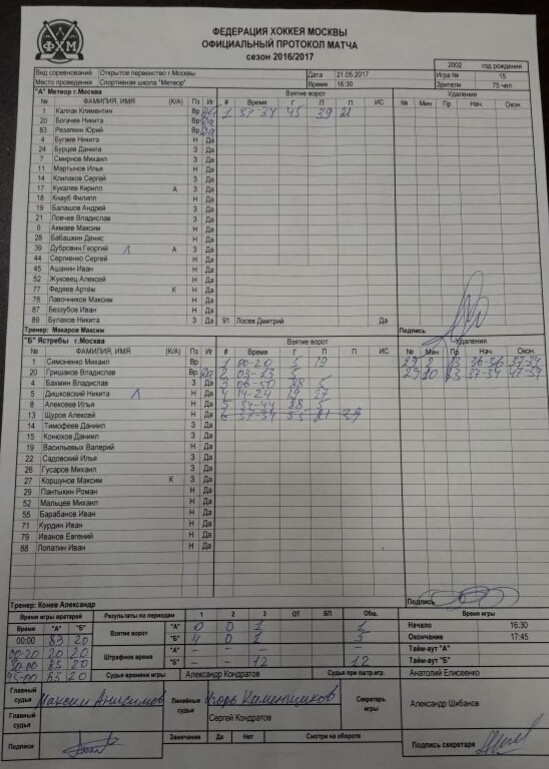 ФЕДЕРАЦИЯ ХОККЕЯ МОСКВЫ
ОФИЦИАЛЬНЫЙ ПРОТОКОЛ МАТЧА
сезон 2016/2017
ФХМ
2002 год рождения
Вид соревнований Открытое первенство г.Москвы Дата 21.05.2017 Игра № 15
Место проведения Спортивная школа "Метеор" Время 16:30 Зрители 75 чел.
"А" Метеор г.Москва Взятие ворот Удаления
№ ФАМИЛИЯ, ИМЯ (К/А) Пз Иг # Время Г П П ИС № Мин Пр Нач. Окон.
1 Каплан Климентин Вр 1 37-34 45 39 21
20 Богачев Никита Вр Да
83 Резапкин Юрий Вр Да
4 Бугаев Никита Н Да
24 Бурцев Данила З Да
7 Смирнов Михаил З Да
11 Мартынов Илья Н Да
14 Клипаков Сергей З Да
17 Кукалев Кирилл А З Да
18 Кнауб Филипп Н Да
19 Балашов Андрей З Да
21 Ловчев Владислав З Да
6 Акмаев Максим Н Да
28 Бабашкин Денис Н Да
39 Дубровин Георгий А З Да
44 Сергиенко Сергей Н Да
45 Ашанин Иван Н Да
52 Жуковец Алексей Н Да
77 Федяев Артём К Н Да
78 Лавочников Максим Н Да
87 Беззубов Иван Н Да
89 Булахов Никита З Да 91 Лосев Дмитрий Да
Тренер: Макаров Максим Подпись
"Б" Ястребы г.Москва Взятие ворот Удаления
№ ФАМИЛИЯ, ИМЯ (К/А) Пз Иг # Время Г П П ИС № Мин Пр Нач. Окон.
1 Симоненко Михаил Вр 1 00-20 5 19 29 2 13 36-56 37-34
20 Гришаков Владислав Вр Да 2 03-13 5 29 10 13 37-34 47-34
4 Бахмин Владислав З Да 3 06-50 88 5
5 Дишковский Никита Н Да 4 14-24 19 27
8 Алексеев Илья Н Да 5 34-44 88 5
13 Щуров Алексей Н Да 6 37-34 55 21 39
14 Тимофеев Даниил З Да
15 Конюхов Даниил З Да
19 Васильевых Валерий Н Да
22 Садовский Илья З Да
26 Гусаров Михаил З Да
27 Коршунов Максим К З Да
29 Пантыкин Роман Н Да
52 Мальцев Михаил Н Да
55 Барабанов Иван Н Да
71 Курдин Иван Н Да
79 Иванов Евгений Н Да
88 Лопатин Иван Н Да
Тренер: Конев Александр Подпись
Время игры вратарей Результаты по периодам 1 2 3 ОТ БП Общ. Время игры
Время "А" "Б" Взятие ворот "А" 0 0 1 1 Начало 16:30
00:00 83 20 "Б" 4 0 1 5 Окончание 17:45
00-20 20 20 Штрафное время "А" - - - - Тайм-аут "А"
30-00 83 20 "Б" - - 12 12 Тайм-аут "Б"
45-00 83 20 Судья времени игры Александр Кондратов Судья при оштр.иг. Анатолий Елисеенко
Главный судья Максим Анисимов Линейные судьи Игорь Каменщиков Секретарь игры Александр Шибанов
Главный судья Сергей Кондратов
Подписи Замечания Да Нет Смотри на обороте Подпись секретаря